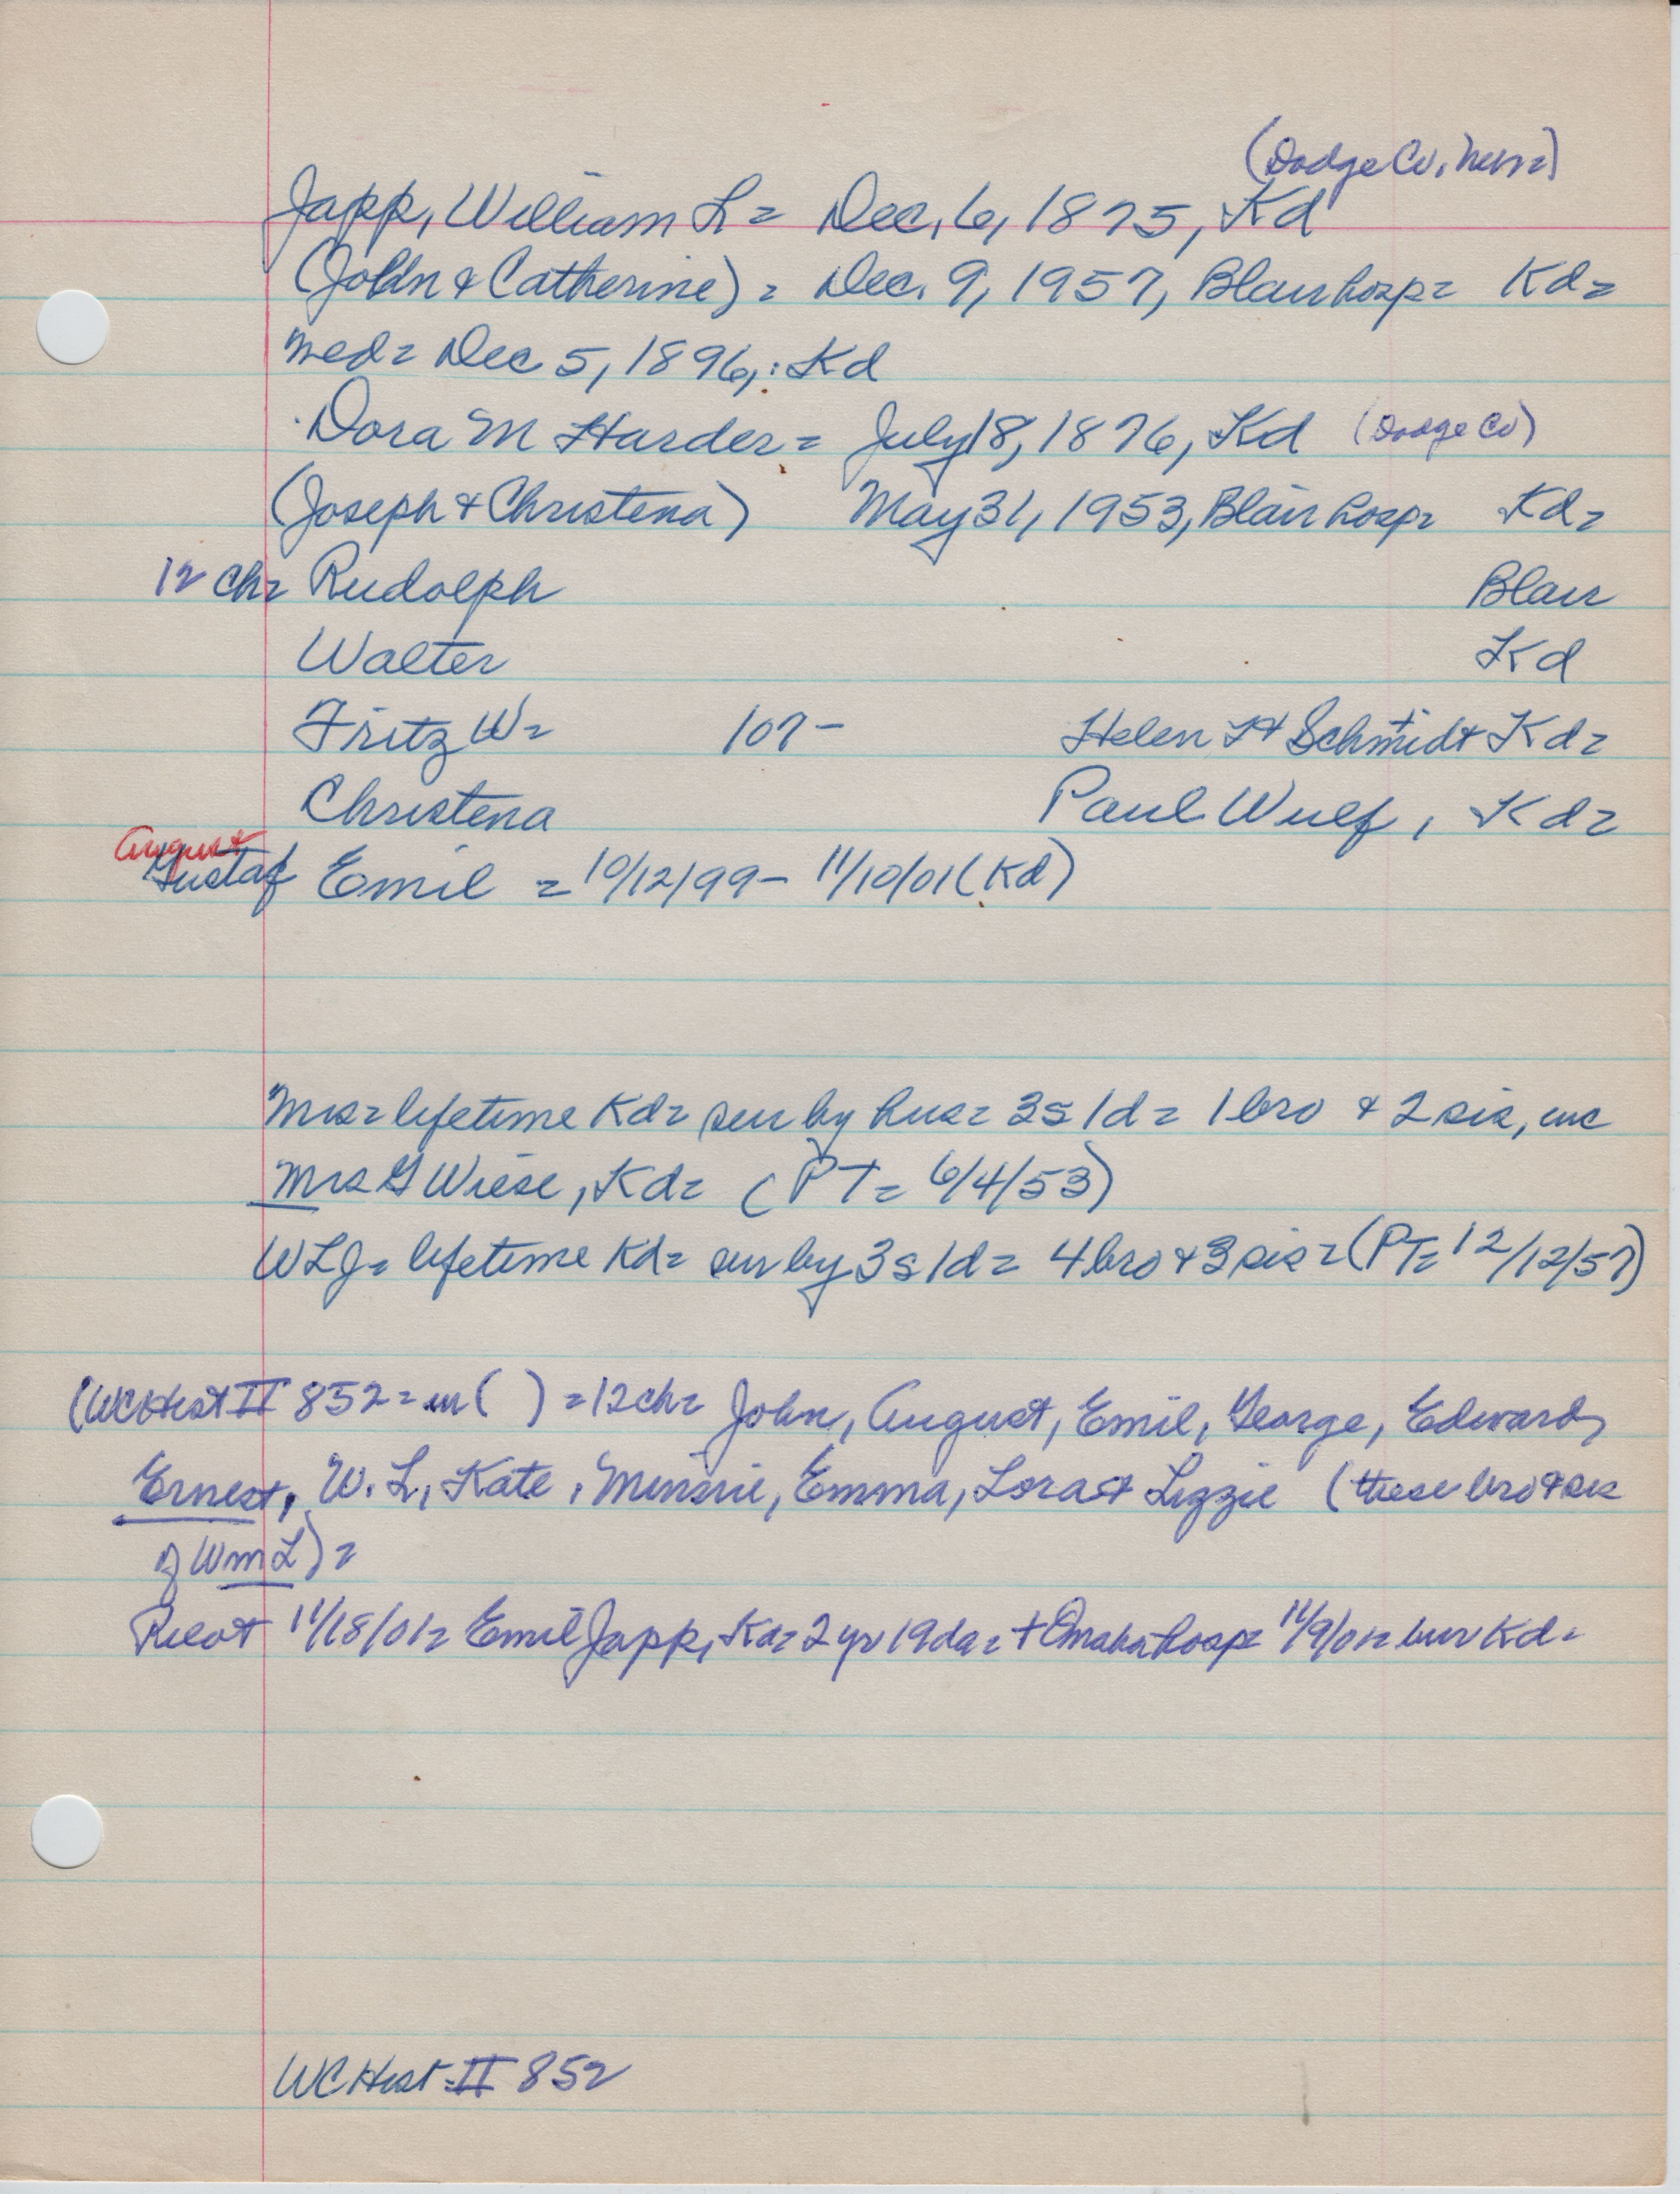 (Dodge Co, Nebr=)
Japp, William L = Dec, 6, 1875, Kd
(John & Catherine) = Dec. 9, 1957, Blair hosp = Kd =
Med = Dec 5, 1896, : Kd
Dora M Harder = July 18, 1876, Kd (Dodge Co)
(Joseph & Christena) May 31, 1953, Blair hosp = Kd =
12 ch = Rudolph Blair
Walter Kd
Fritz W = 107 - Helen H Schmidt Kd =
Christena Paul Wulf, Kd =
August
Gustaf Emil = 10/12/99 - 11/10/01 (Kd)
Mrs = lifetime Kd = sur by hus = 3s 1d = 1 bro & 2 sis, inc
Mrs G Wiese, Kd = (PT = 6/4/53)
WLJ = lifetime Kd = sur by 3s 1d = 4 bro & 3 sis = (PT = 12/12/57)
(WC Hist II 852 = m ( ) = 12 ch = John, August, Emil, George, Edward,
Ernest, W. L, Kate, Minnie, Emma, Lora & Lizzie (these bro & sis
of Wm L) =
Pilot 11/18/01 = Emil Japp, Kd = 2 yr 19 da = + Omaha hosp = 11/9/01 = bur Kd =
WC Hist - II 852